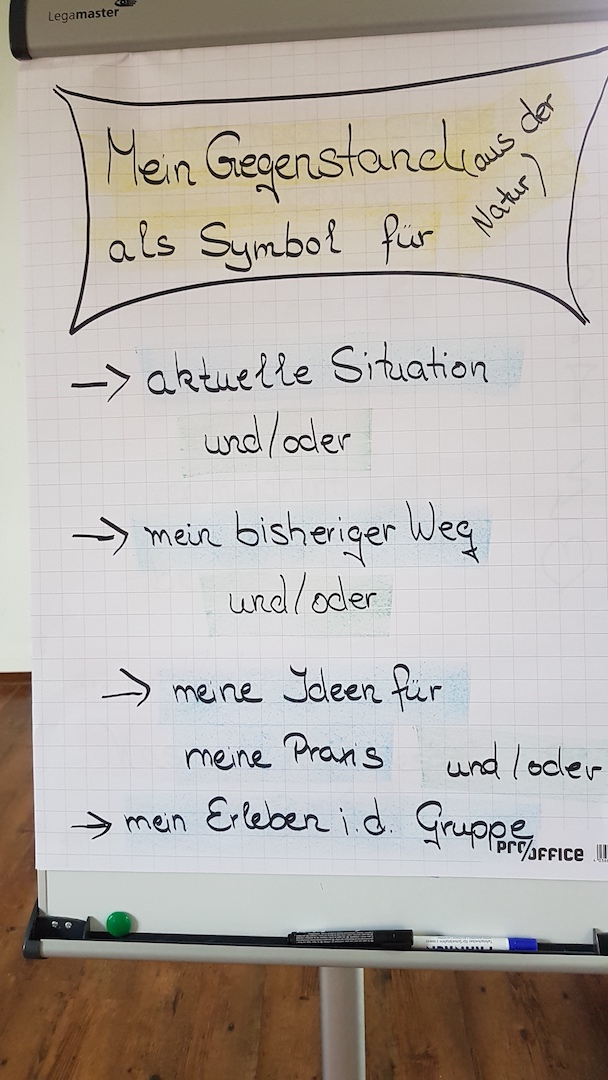 Legamaster
Mein Gegenstand (aus der
Natur)
als Symbol für
→ aktuelle Situation
und/oder
→ mein bisheriger Weg
und/oder
→ meine Ideen für
meine Praxis und/oder
→ mein Erleben i.d. Gruppe
PRO/OFFICE